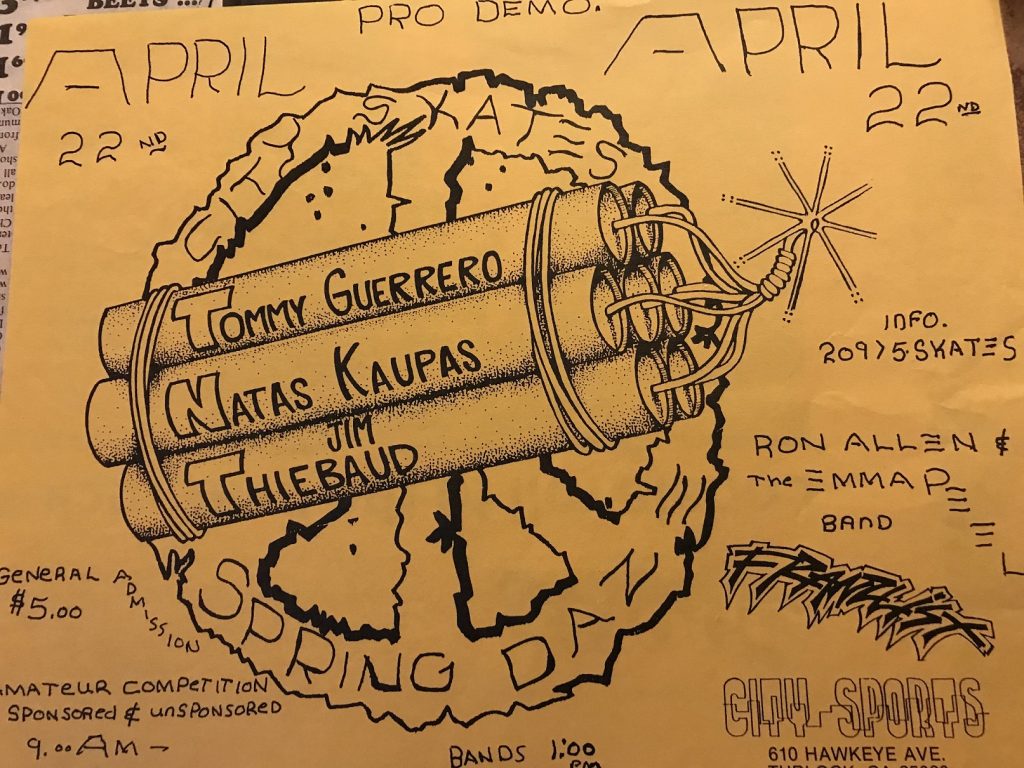 BEETS
PRO DEMO.
APRIL
22ND
APRIL
22ND
SKATES
TOMMY GUERRERO
NATAS KAUPAS
JIM
THIEBAUD
INFO.
209>5.SKATES
RON ALLEN &
THE EMMA PEEL
BAND
GENERAL ADMISSION
$5.00
SPRING DAN
AMATEUR COMPETITION
SPONSORED & UNSPONSORED
9.00AM-
BANDS 1:00
PM
CITY SPORTS
610 HAWKEYE AVE.